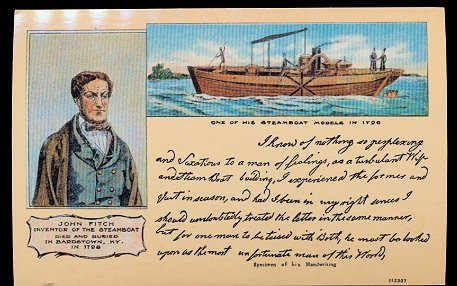 ONE OF HIS STEAMBOAT MODELS IN 1790
I know of nothing so perplexing
and Vexatious to a man of feelings, as a turbulent Wife
and Steam Boat building, I experienced the former and
Quit in season, and had I been in my right senses I
should undoubtedly treated the latter in the same manner,
but for one man to be teised with Both, he must be looked
upon as the most unfortunate man of this World,
Specimen of his Handwriting
JOHN FITCH
INVENTOR OF THE STEAMBOAT
DIED AND BURIED
IN BARDSTOWN, KY.
IN 1798